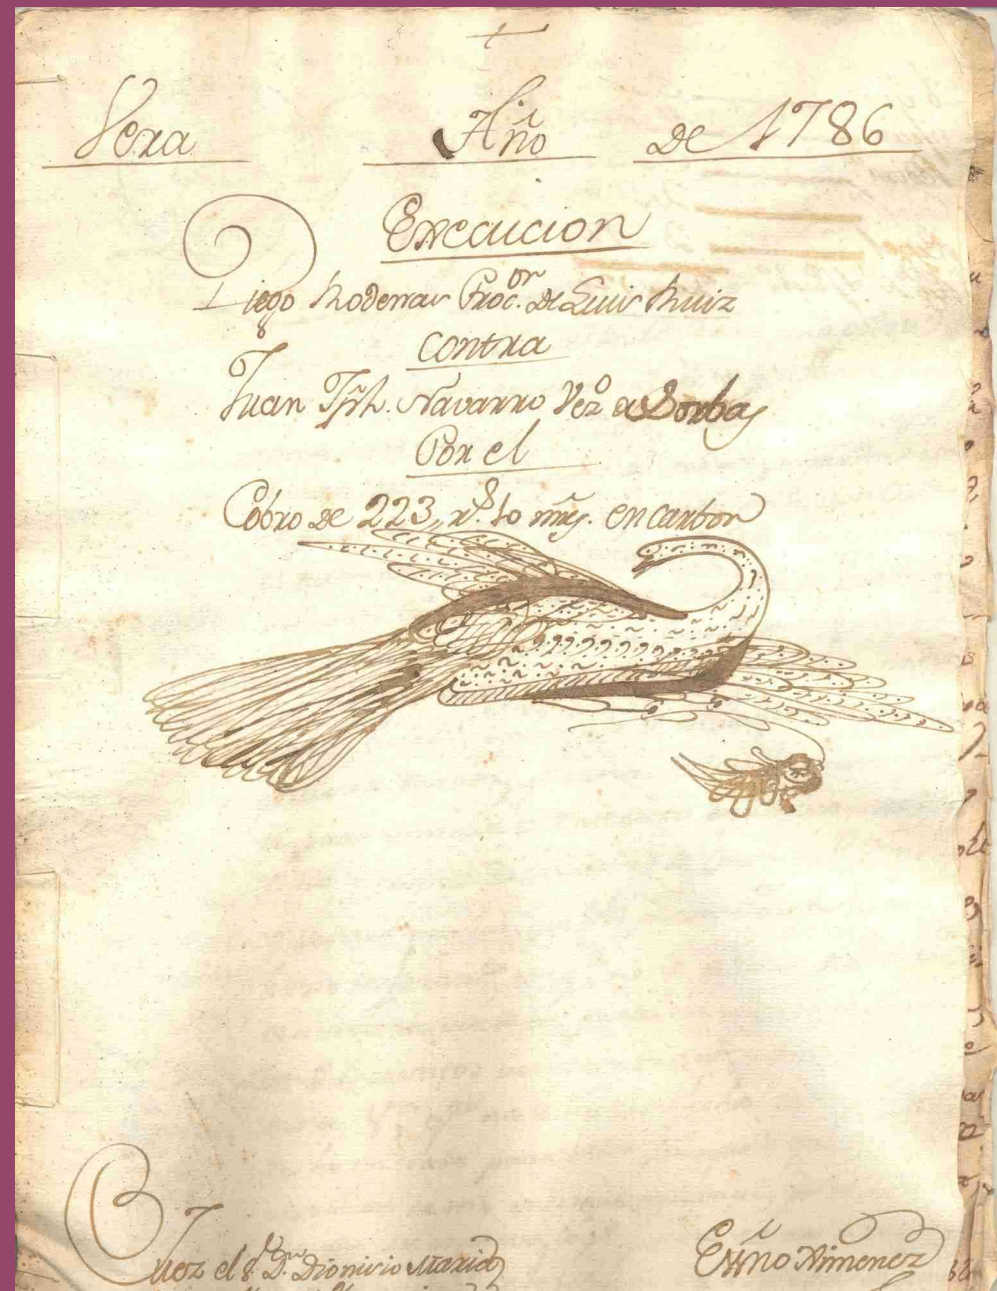 Vera Año de 1786
Execucion
Diego Rodenas Proc.or de Luis Ruiz
contra
Juan Jph. Navarro Vez.o de Sorbas
Por el
Cobro de 223, r.s 10 mrs. en carbon
Juez el S. D.n Dionicio Maria
Essno Ximenez